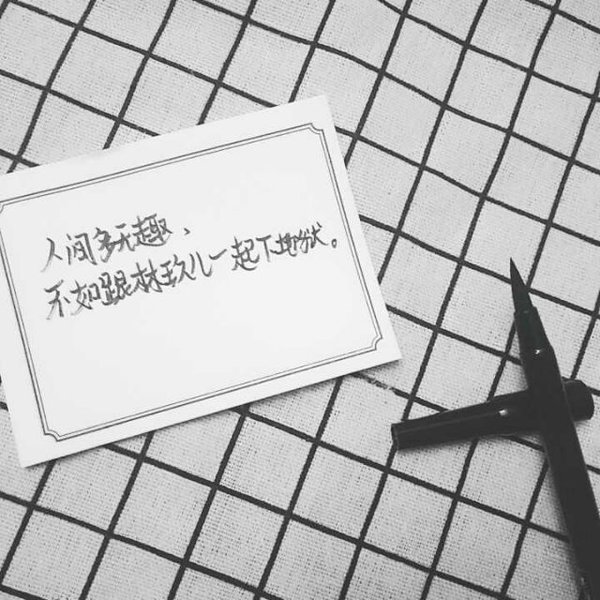 人间多无趣、
不如跟林玖儿一起下地狱。